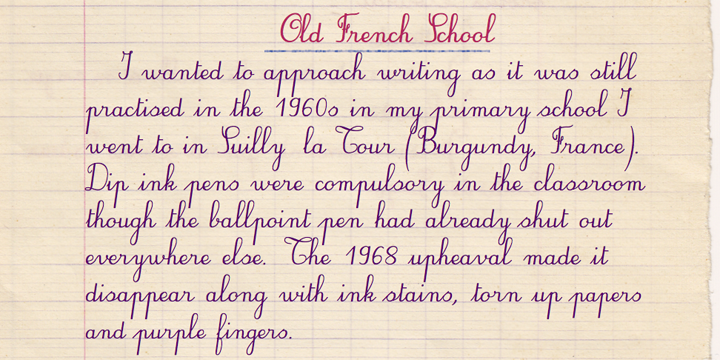 Old French School
I wanted to approach writing as it was still
practised in the 1960s in my primary school I
went to in Suilly la Tour (Burgundy, France).
Dip ink pens were compulsory in the classroom
though the ballpoint pen had already shut out
everywhere else. The 1968 upheaval made it
disappear along with ink stains, torn up papers
and purple fingers.